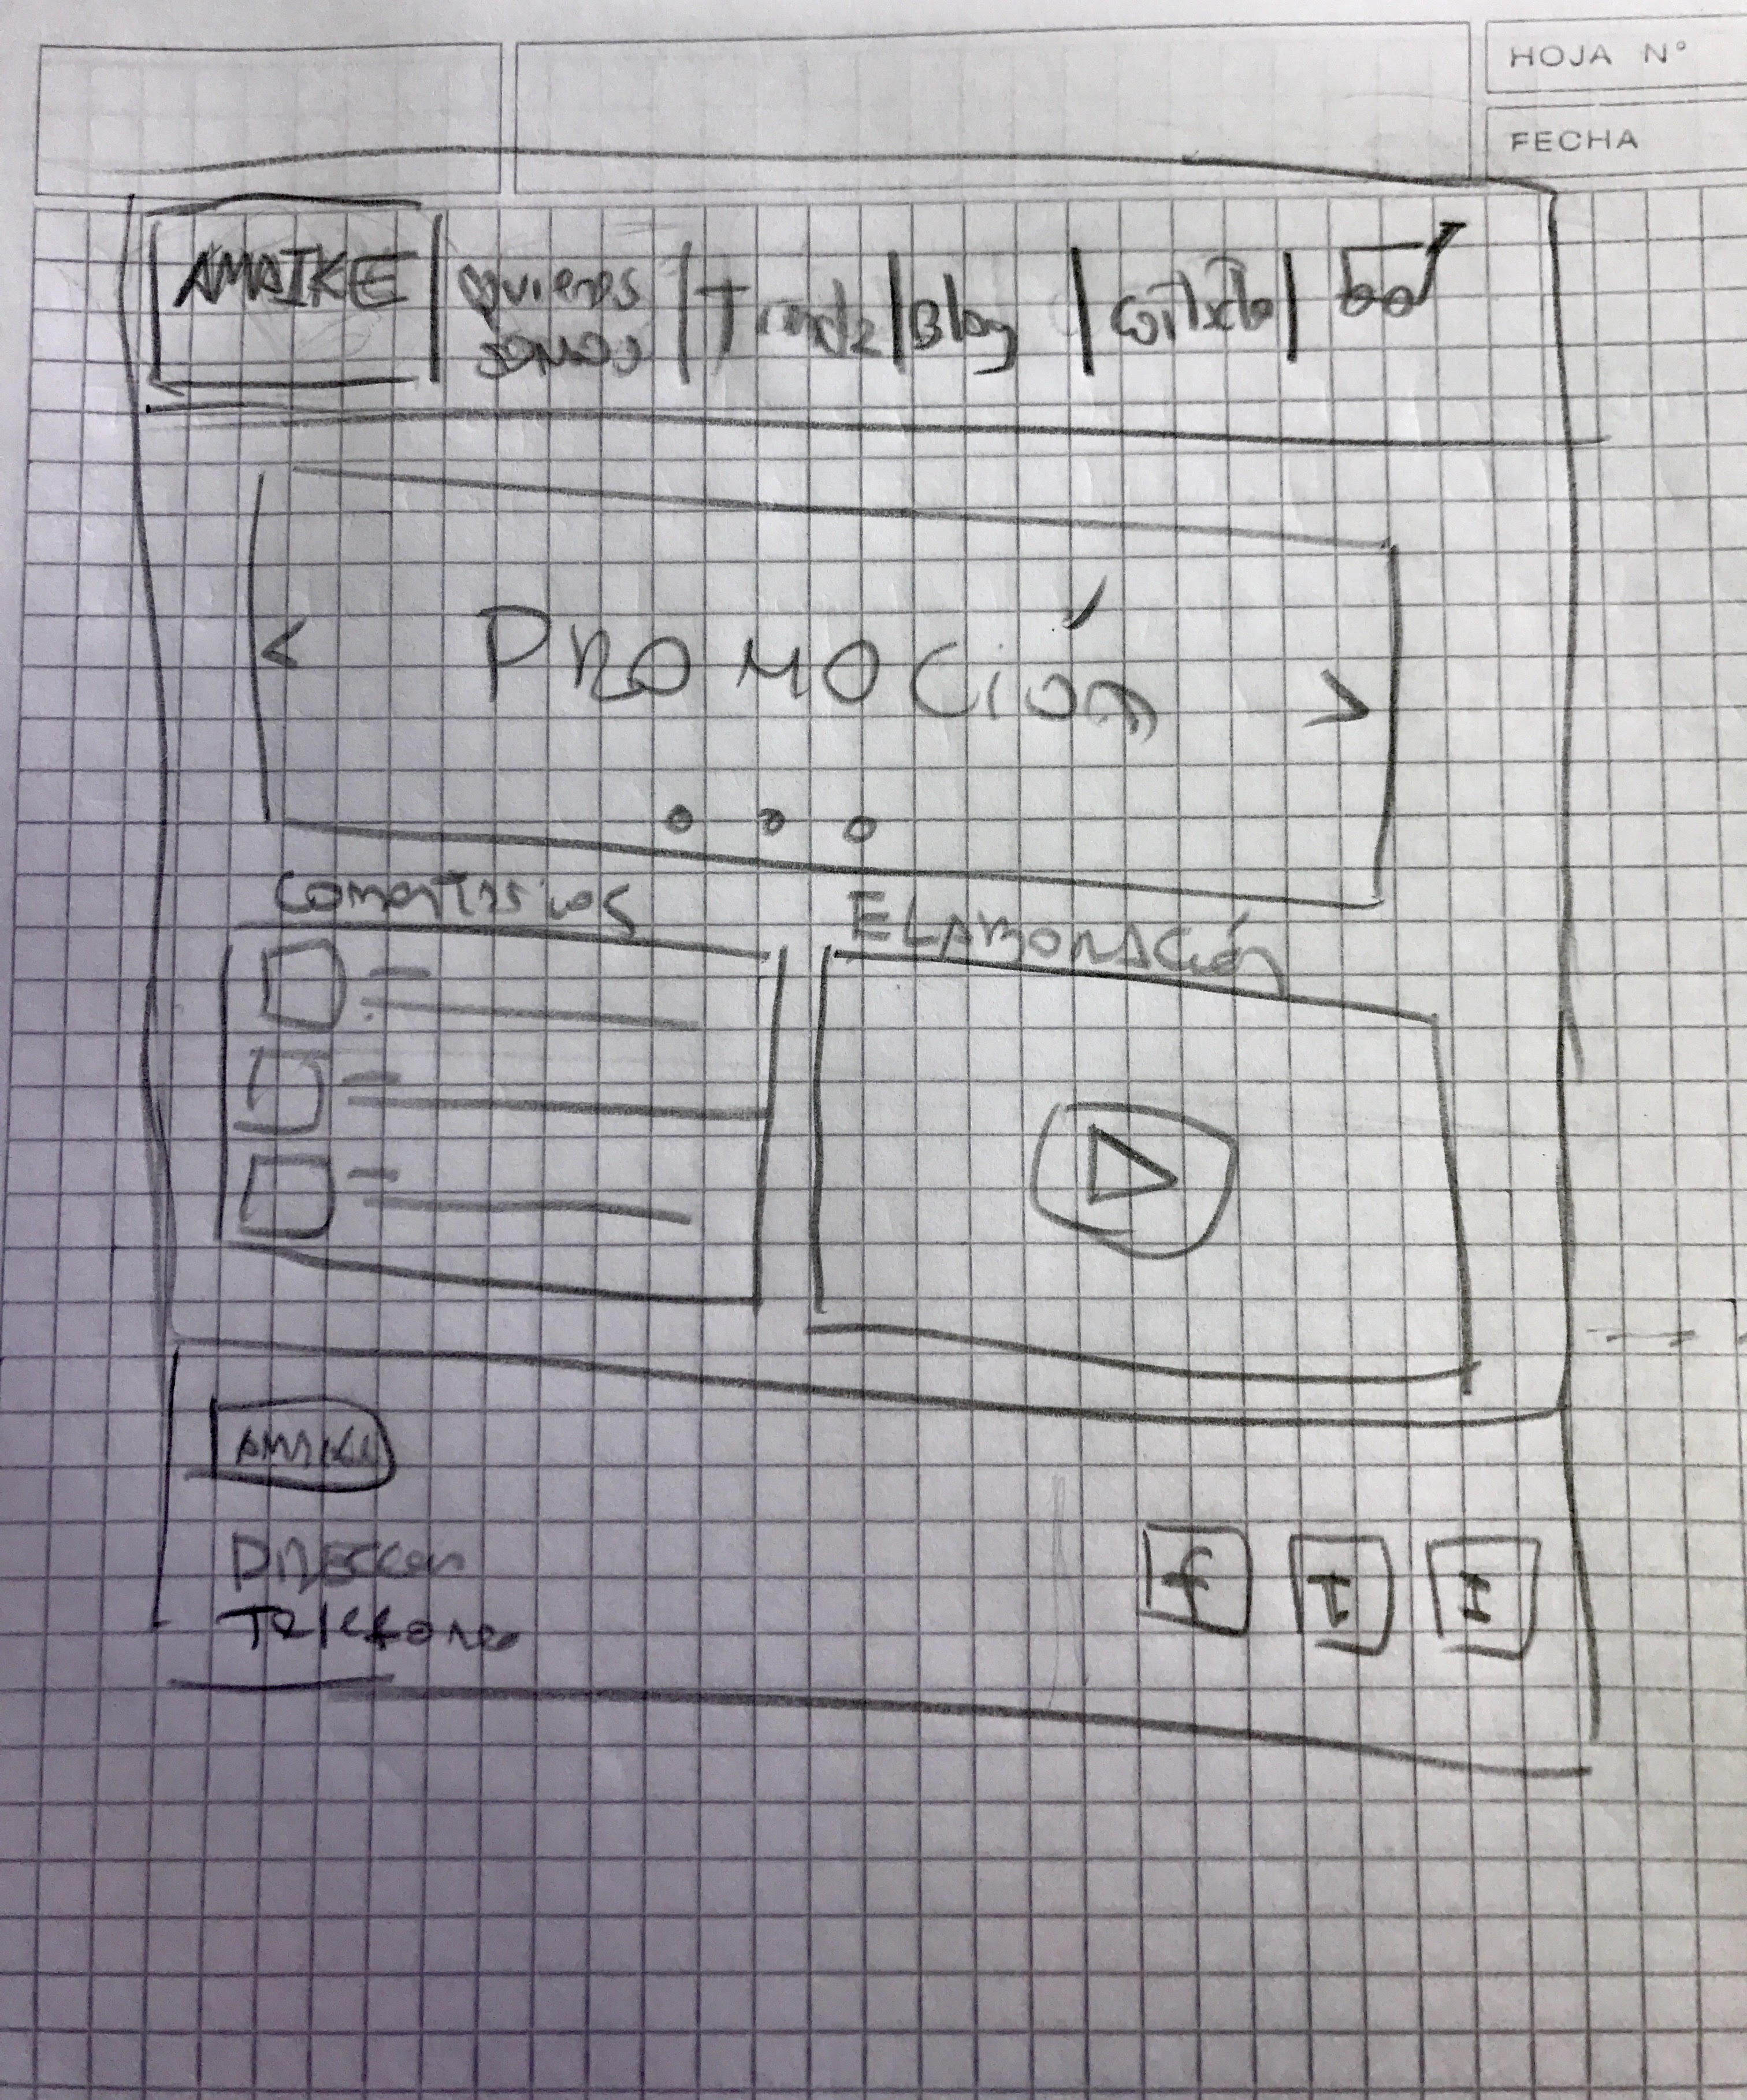 HOJA N°
FECHA
AMAIKE | quienes somos | Tienda | Blog | Contacto |
< PROMOCIÓn >
Comentarios
ELABORACión
AMAIKE
Direccion
Telefono
f T I